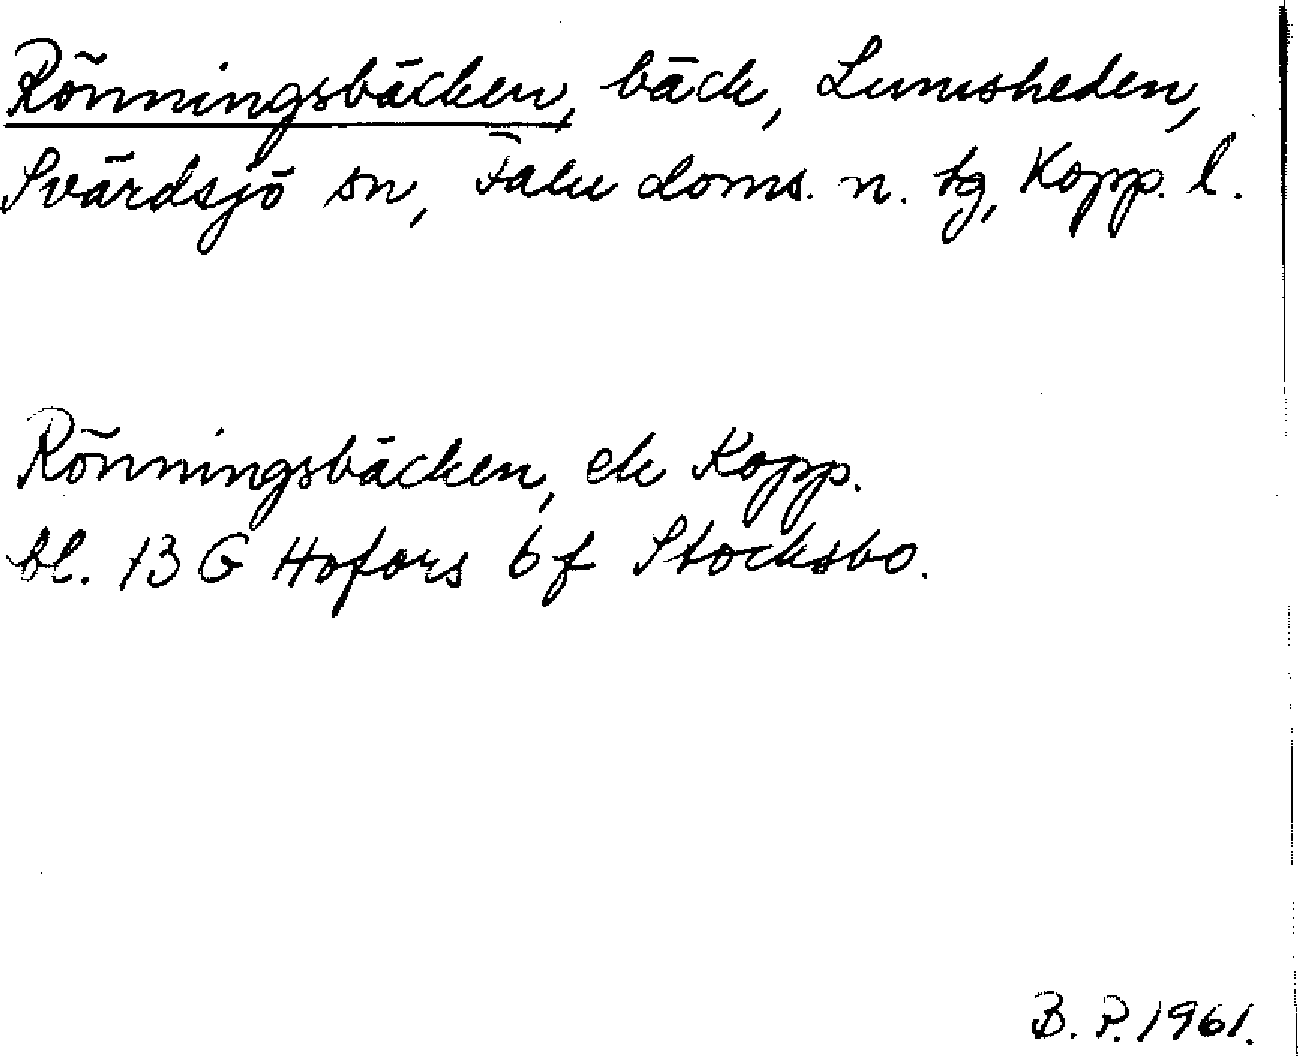 Rönningsbäcken, bäck, Lumsheden,
Svärdsjö sn, Falu doms. n. tg, Kopp. l.
Rönningsbäcken, ek Kopp.
bl. 13 G Hofors 6 f Stocksbo.
B. P. 1961.